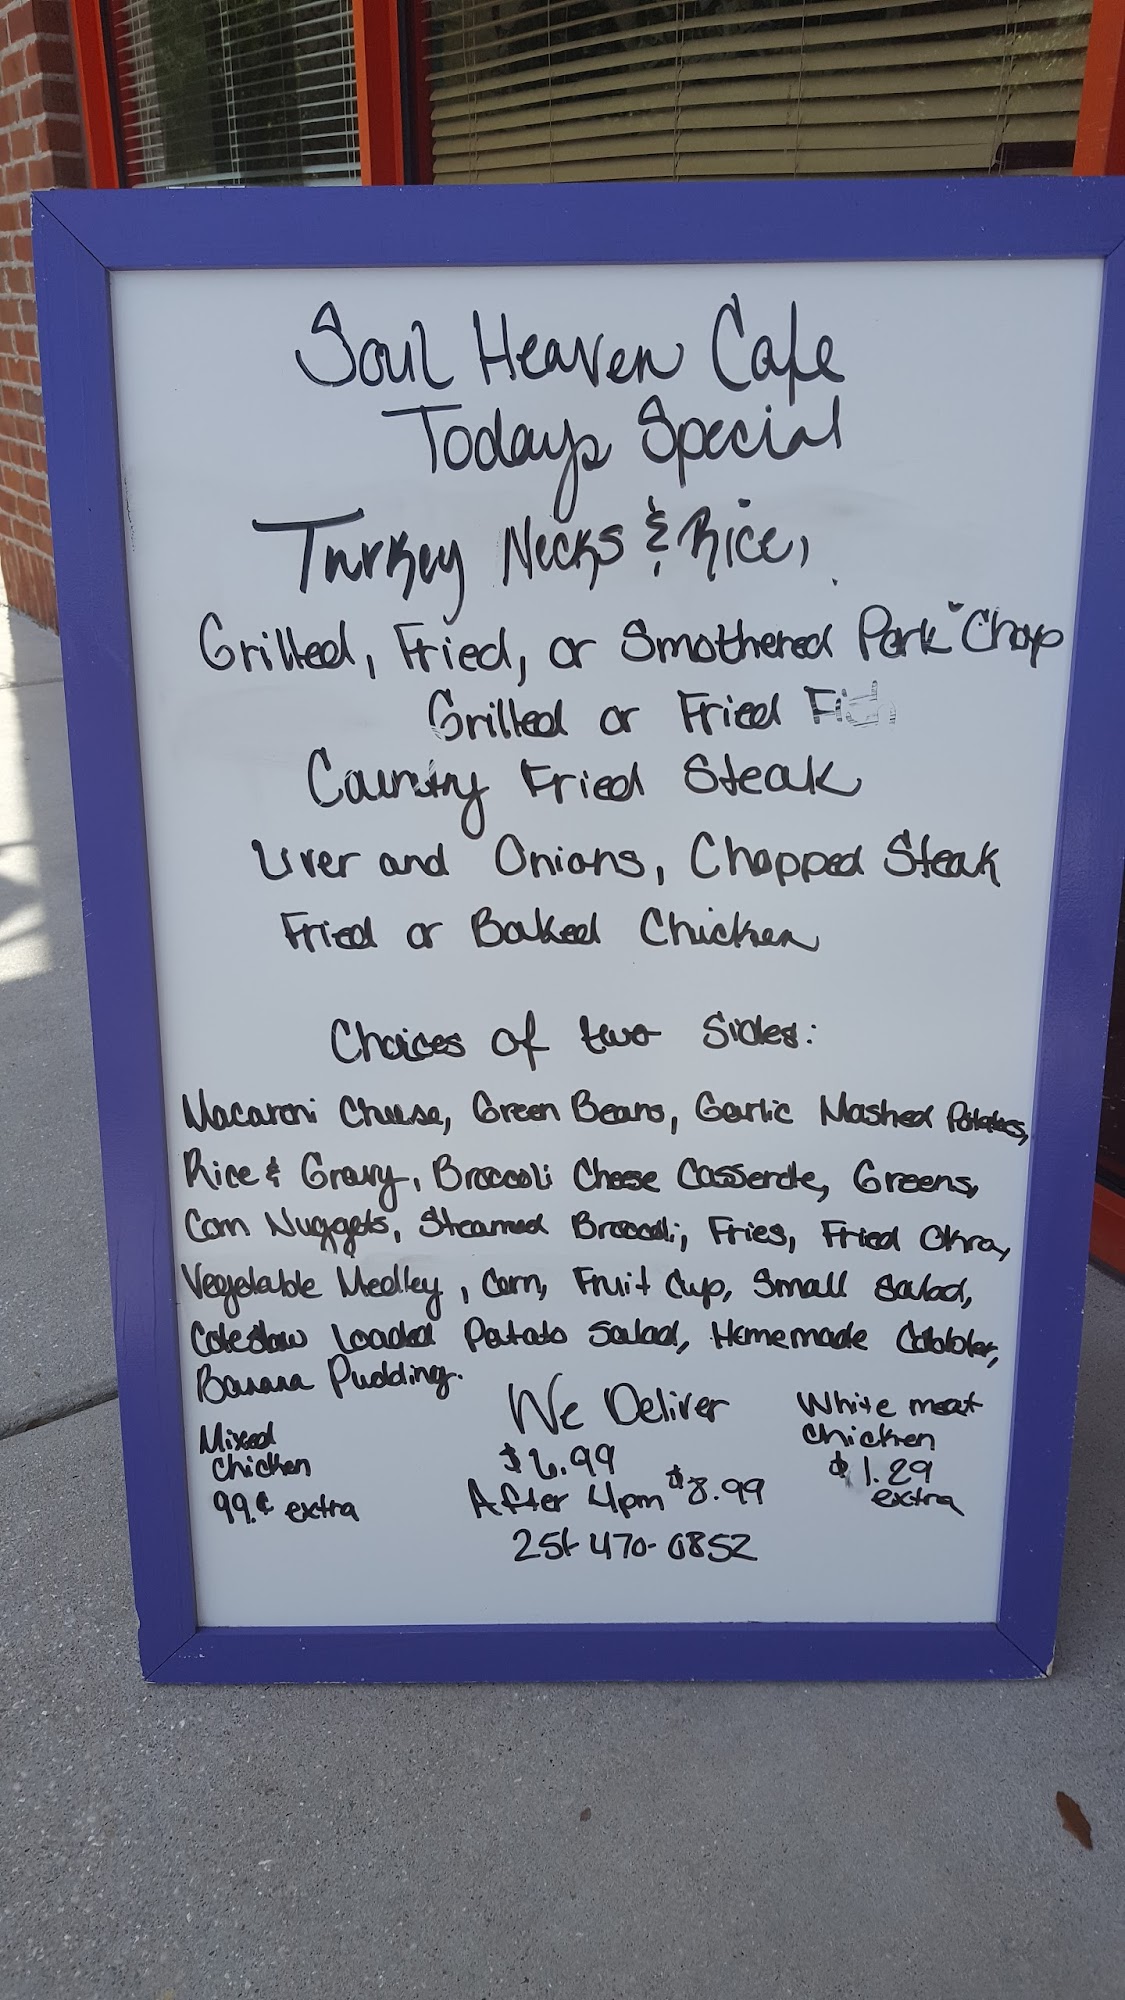 Soul Heaven Cafe
Todays Special
Turkey Necks & Rice,
Grilled, Fried, or Smothered Pork Chop
Grilled or Fried Fish
Country Fried Steak
Liver and Onions, Chopped Steak
Fried or Baked Chicken
Choices of two Sides:
Macaroni Cheese, Green Beans, Garlic Mashed Potatoes,
Rice & Gravy, Broccoli Cheese Casserole, Greens,
Corn Nuggets, Steamed Broccoli, Fries, Fried Okra,
Vegetable Medley, Corn, Fruit Cup, Small Salad,
Coleslaw Loaded Potato Salad, Homemade Cobbler,
Banana Pudding.
We Deliver
$6.99
After 4pm $8.99
251-470-0852
Mixed
Chicken
99¢ extra
White meat
Chicken
$1.29
extra